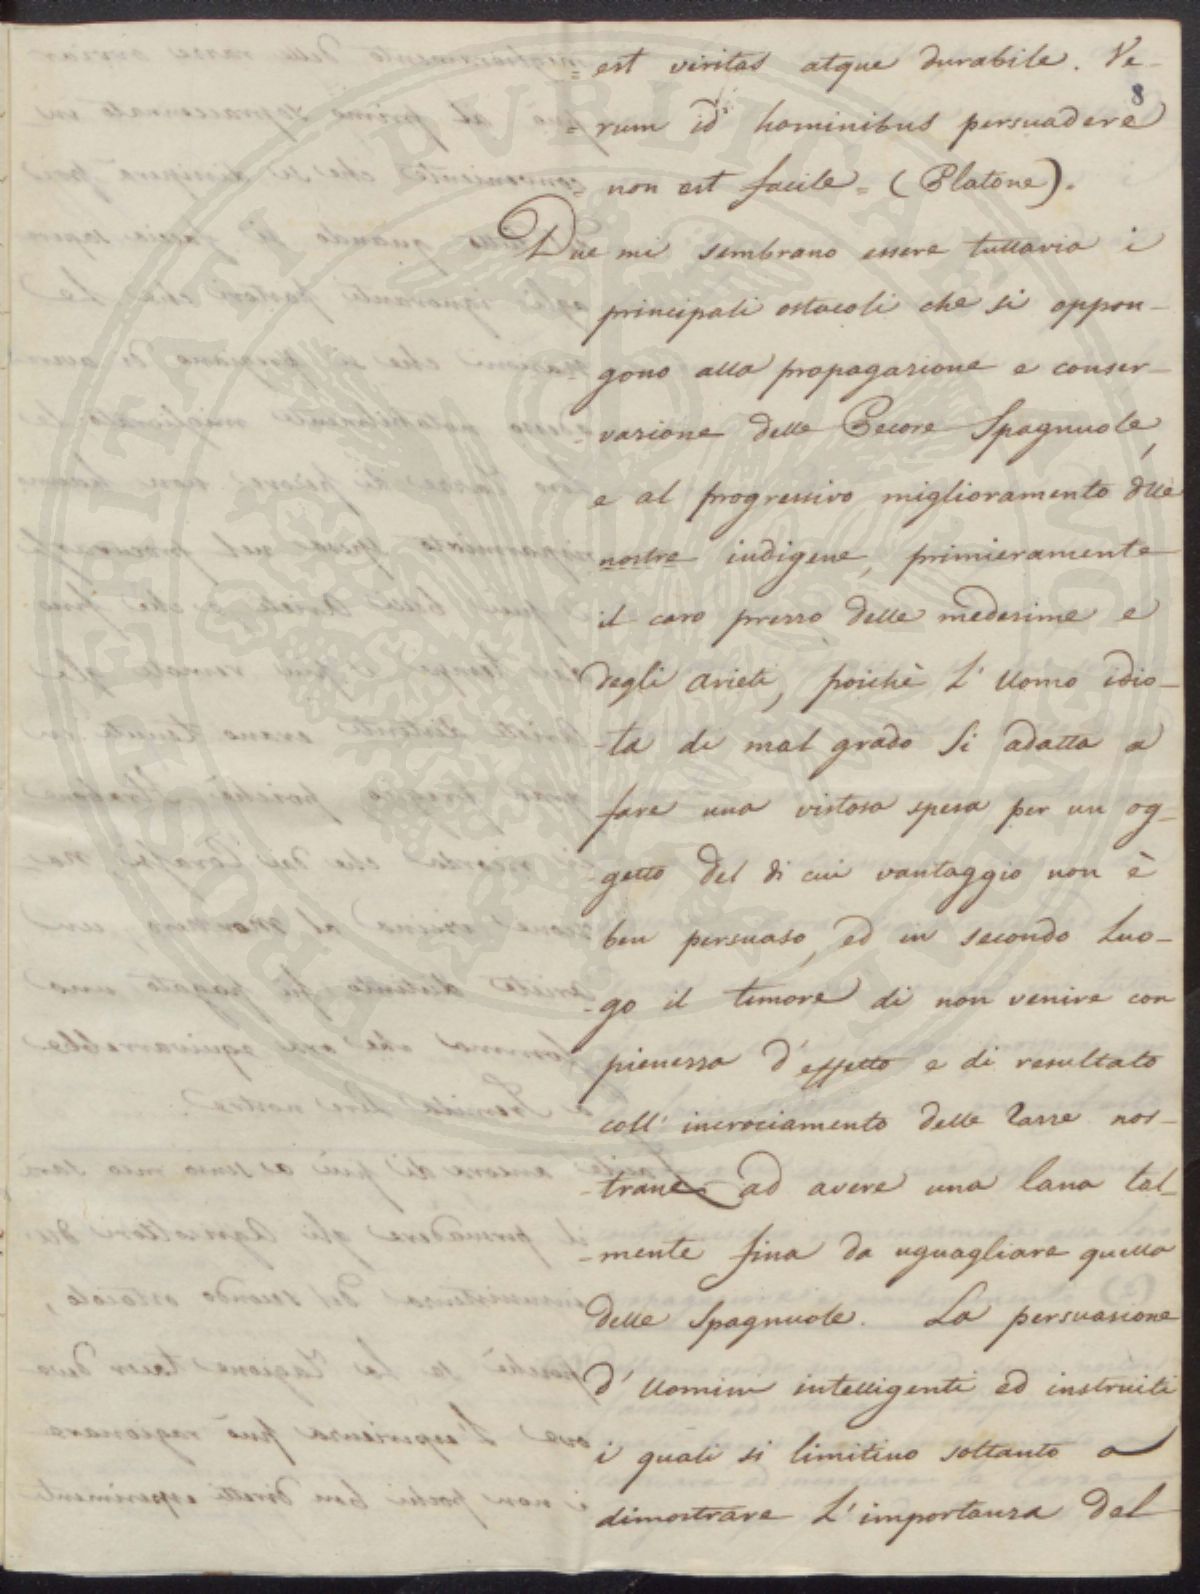 8
= est viritas atque durabile. Ve-
= rum id hominibus persuadere
= non est facile = (Platone).
Due mi sembrano essere tuttavia i
principali ostacoli che si oppon-
gono alla propagazione e conser-
vazione delle Pecore Spagnuole,
e al progressivo miglioramento dlle
nostre indigene, primieramente
il caro prezzo delle medesime e
degli arieti, poichè l'Uomo idio-
-ta di mal grado si adatta a
fare una vistosa spesa per un og-
-getto del di cui vantaggio non è
ben persuaso, ed in secondo luo-
-go il timore di non venire con
pienezza d'effetto e di resultato
coll'incrociamento delle Razze nos-
-trane ad avere una lana tal-
-mente fina da uguagliare quella
delle Spagnuole. La persuasione
d'Uomini intelligenti ed instruiti
i quali si limitino soltanto a
dimostrare l'importanza del